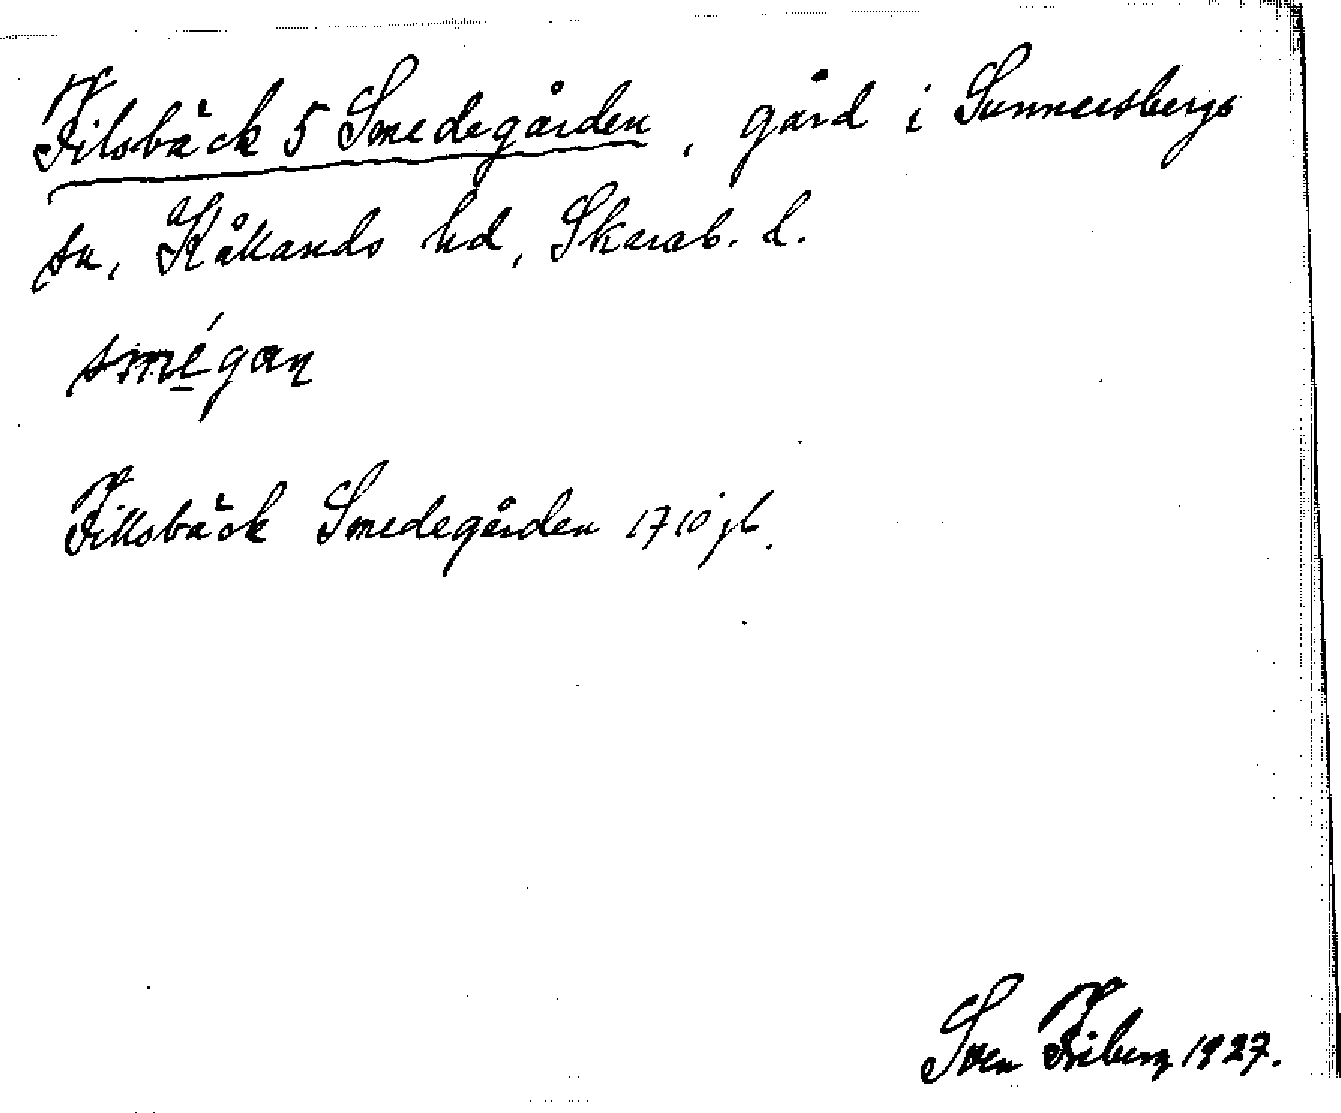 Filsbäck 5 Smedegården, gård i Sunnersbergs
sn, Kållands hd, Skarab. l.
smégaɳ
Fillsbäck Smedegården 1710 jb.
Sven Friberg 1927.